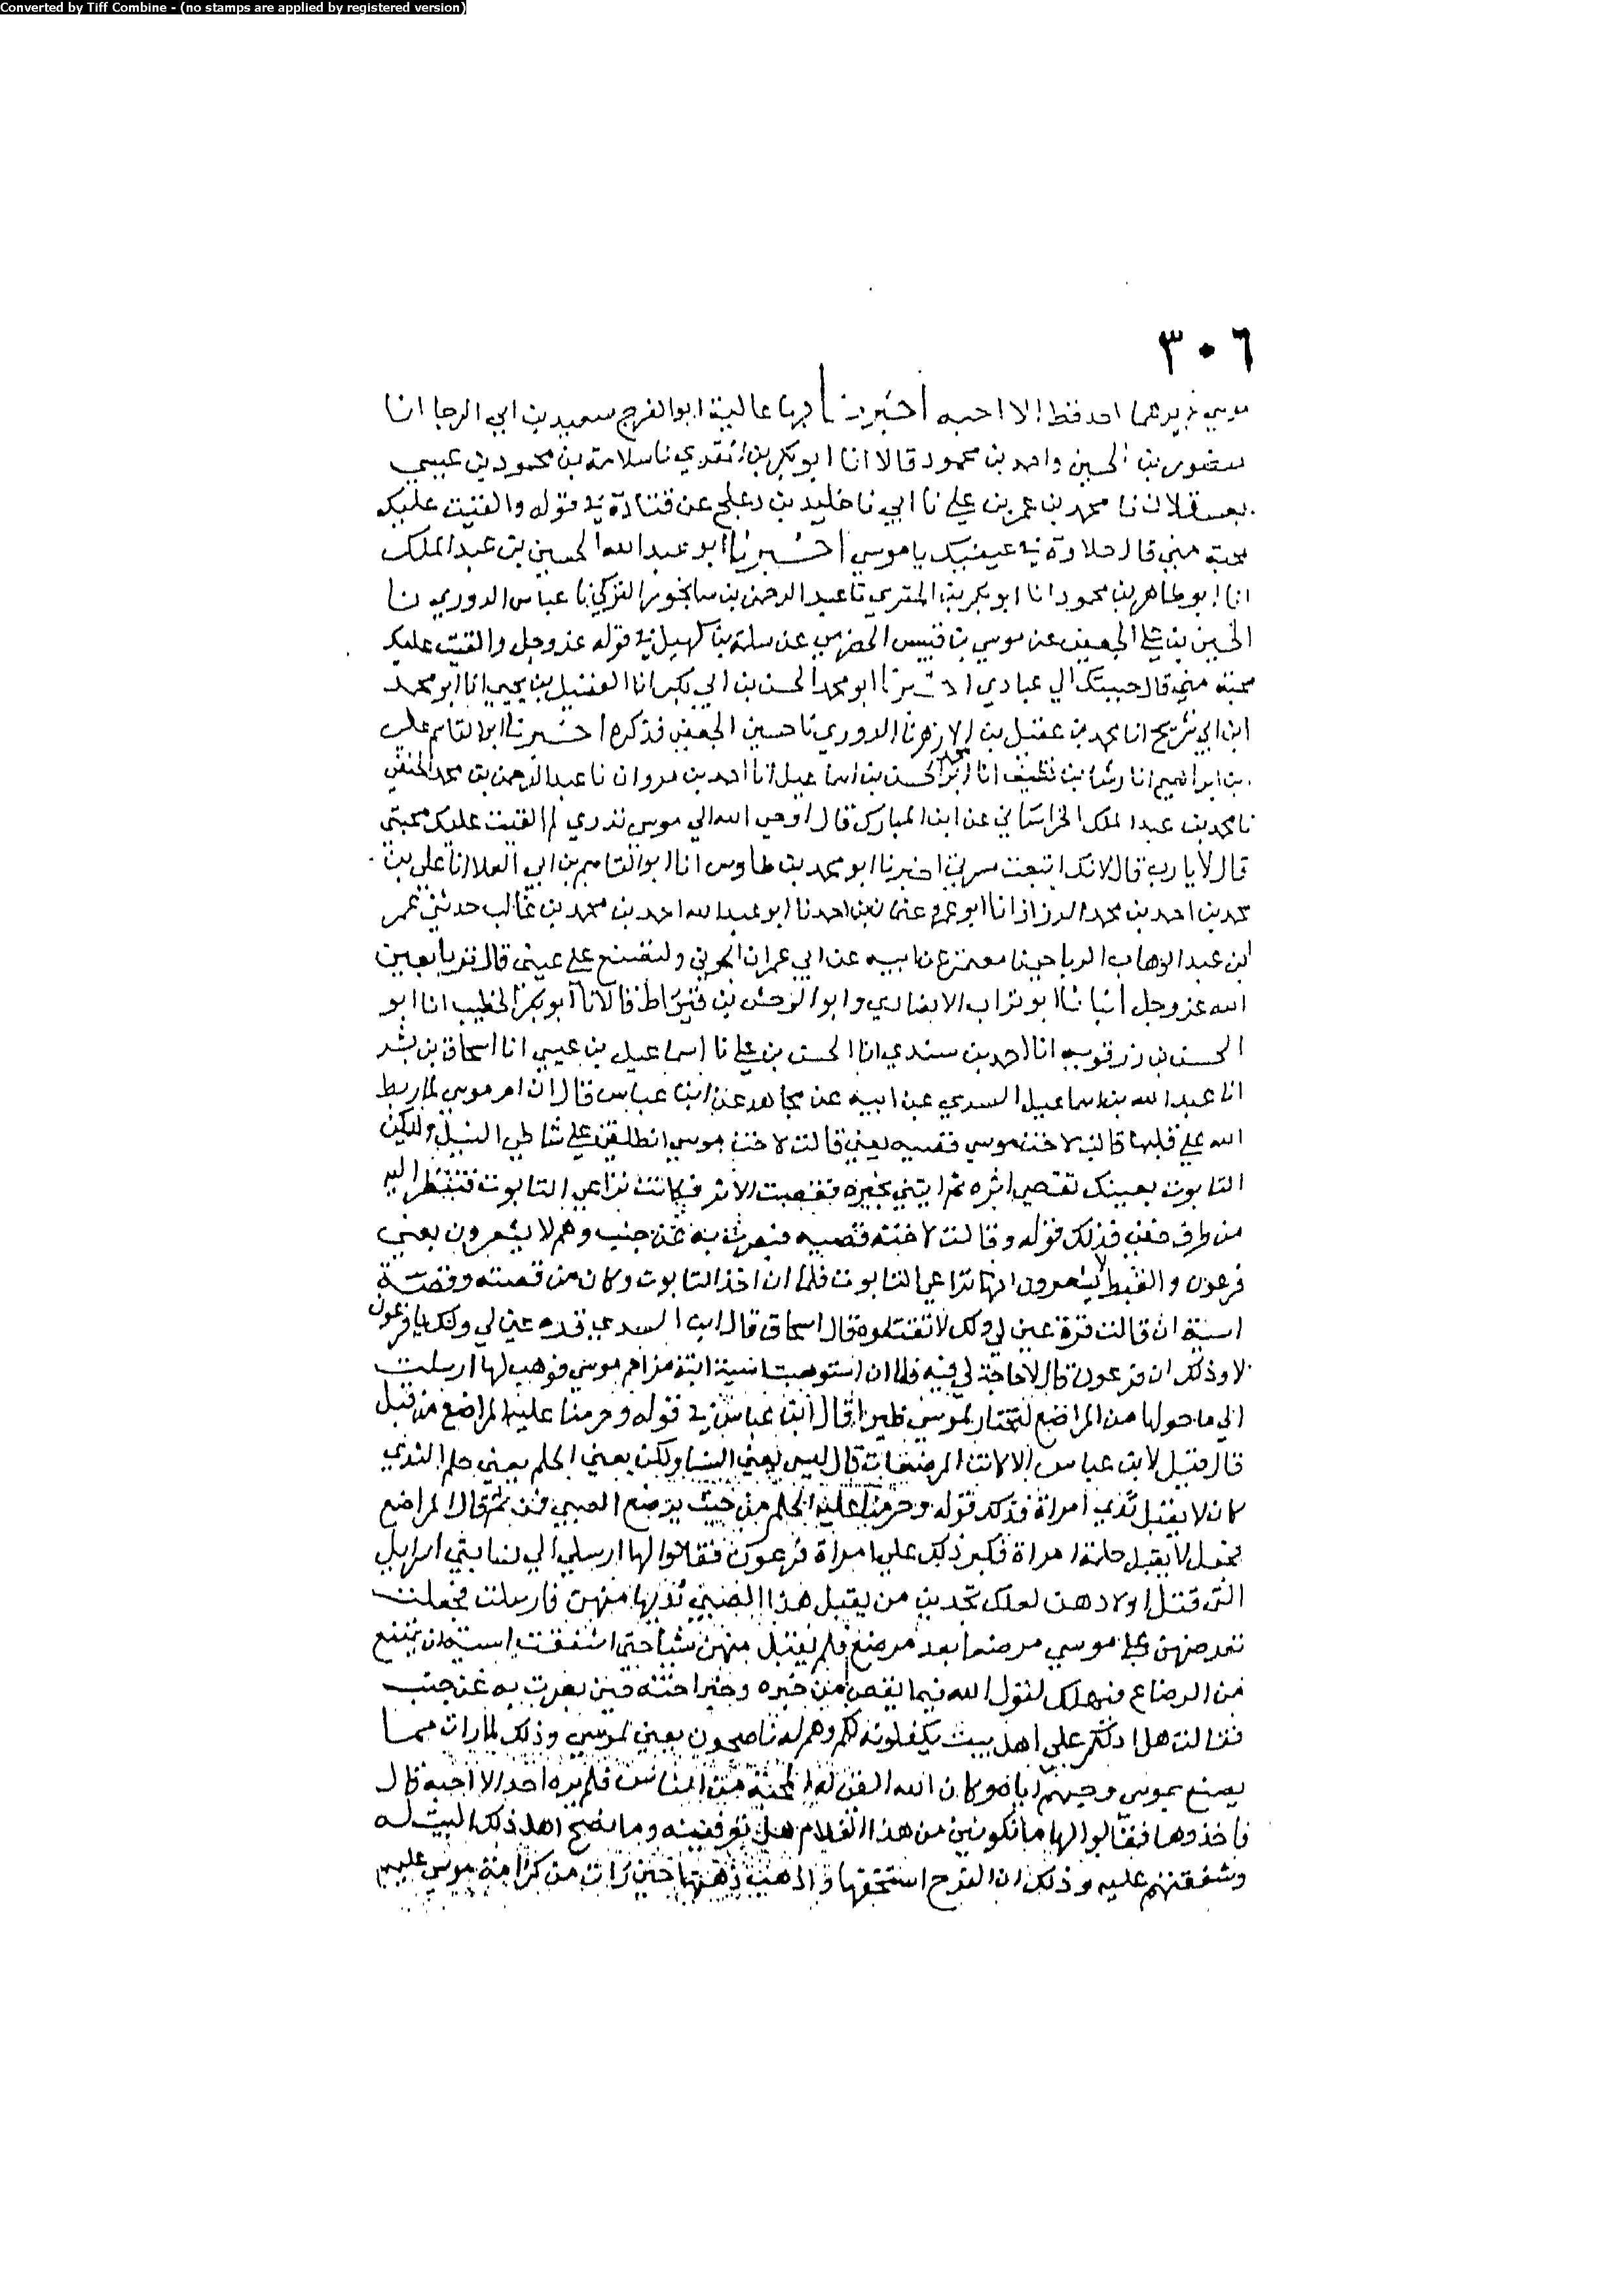 Converted by Tiff Combine - (no stamps are applied by registered version)
٣٠٦
احد قط الا احبه اخبرنا بها عالية ابو الفرج سعيد بن ابي الرجا انا
بن الحسين واحمد بن محمود قالا انا ابو بكر بن المقري نا سلامة بن محمود بن عيسى
بعسقلان نا محمد بن عمر بن علي نا ابي نا خليد بن دعلج عن قتادة في قوله والقيت عليك
محبة مني قال حلاوة في عينيك يا موسي اخبرنا ابو عبد الله الحسين بن عبد الملك
انا ابو طاهر بن محمود انا ابو بكر بن المقري نا عبد الرحمن بن التركي نا عباس الدوري نا
الحسين بن علي الجعفي عن موسي بن قيس الحضرمي عن سلمة بن كهيل في قوله عز وجل والقيت عليك
محبة مني قال حببتك الي عبادي اخبرنا ابو محمد الحسن بن ابي بكر انا الفضيل بن يحيي انا ابو محمد
ابن ابي شريح انا محمد بن عقيل بن الازهر نا الدوري نا حسين الجعفي فذكره اخبرنا ابو القاسم علي
بن ابراهيم انا رشا بن نظيف انا ابو محمد الحسن بن اسماعيل انا احمد بن مروان نا عبد الرحمن بن محمد الحنفي
نا محمد بن عبد الملك الخراساني عن ابن المبارك قال اوحي الله الي موسي تدري لم القيت عليك محبتي
قال لا يا رب قال لانك اتبعت مسرتي اخبرنا ابو محمد بن طاوس انا ابو القاسم بن ابي العلا انا علي بن
محمد بن احمد بن محمد الرزاز انا ابو عمرو عثمان بن احمد نا ابو عبد الله احمد بن محمد بن غالب حدثني عمر
ابن عبد الوهاب الرياحي نا معتمر عن ابيه عن ابي عمران الجوني ولتصنع علي عيني قال تربا بعين
الله عز وجل انبانا ابو تراب الانصاري وابو الوحش بن قيراط قالا نا ابو بكر الخطيب انا ابو
الحسن بن رزقويه انا احمد بن سندي انا الحسن بن علي نا اسماعيل بن عيسي انا اسحاق بن بشر
انا عبد الله بن اسماعيل السدي عن ابيه عن مجاهد عن ابن عباس قال ان ام موسي لما ربط
الله علي قلبها قالت لاخت موسي قصيه يعني قالت لاخت موسي انطلقي علي شاطي النيل وليكن
التابوت بعينك تقصي اثره ثم ايتني بخبره فقصت الاثر فكانت تراعي التابوت فتنظر اليه
من طرف خفي فذلك قوله وقالت لاخته قصيه فبصرت به عن جنب وهم لا يشعرون يعني
فرعون والقبط لا يشعرون انها تراعي التابوت فلما ان اخذ التابوت وكان من قصته وقصة
اسية ان قالت قرة عين لي ولك لا تقتلوه قال اسحاق قال ابن السدي قرة عين لي ولك يا فرعون
لا وذلك ان فرعون قال لا حاجة لي فيه فلما ان استوهبت اسية ابنة مزاحم موسي فوهب لها ارسلت
الي ما حولها من المراضع لتختار لموسي ظيرا قال ابن عباس في قوله وحرمنا عليه المراضع من قبل
قال فقيل لابن عباس الا كانت المرضعات قال ليس يعني النسا ولكن يعني الحلم يعني حلم الثدي
كان لا يقبل ثدي امراة فذلك قوله وحرمنا عليه الحلم من حيث يرضع الصبي فمن ثم قال المراضع
فجعل لا يقبل حلمة امراة فكبر ذلك علي امراة فرعون فقالوا لها ارسلي الي نسا بني اسرايل
التي قتل اولادهن لعلك تجدين من يقبل هذا الصبي ثديها منهن فارسلت فجعلت
تعرضهن علي موسي مرضعا بعد مرضع فلم يقبل منهن شيا حتي اشفقت اسية ان يمتنع
من الرضاع فيهلك لقول الله فيما يقص من خبره وخبر اخته حين بصرت به عن جنب
فقالت هل ادلكم علي اهل بيت يكفلونه لكم وهم له ناصحون يعني لموسي وذلك لما رات مما
يصنع بموسي وحبهم اياه وكان الله القي له المحبة من الناس فلم يره احد الا احبه قال
فاخذوها فقالوا لها ما تكونين من هذا الغلام هل تعرفينه وما نصح اهل ذلك البيت له
وشفقتهم عليه وذلك ان الفرح استخفها واذهب ذهنها حين رات من كرامة موسي عليهم